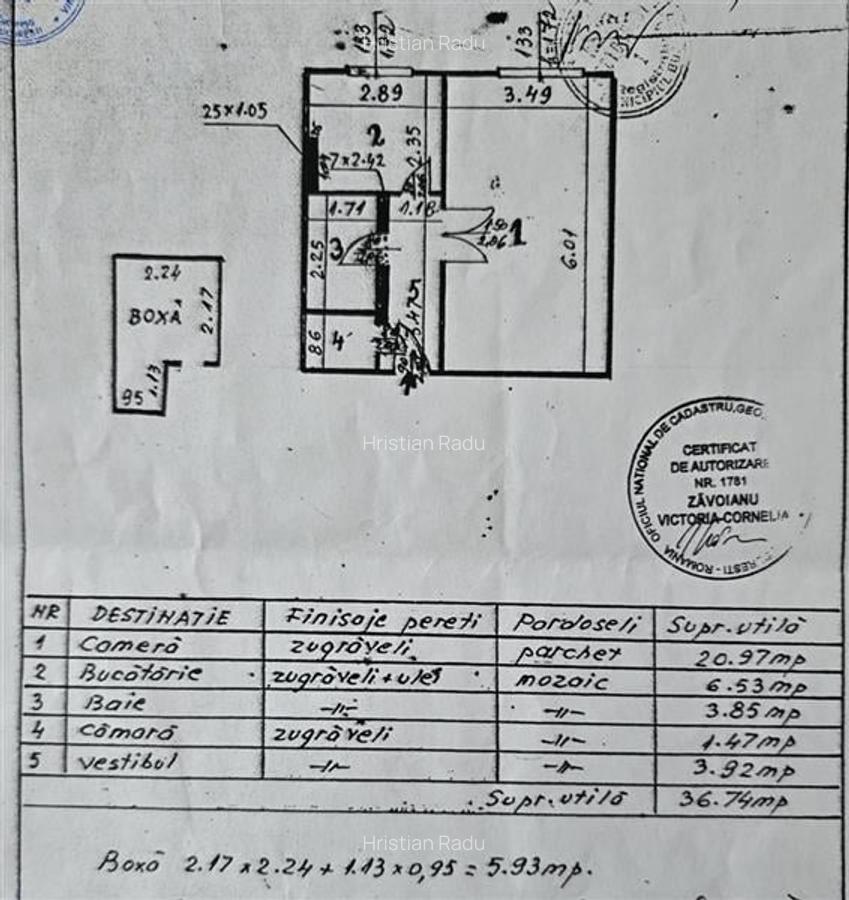 Hristian Radu
133
1.72
133
2.89
3.49
25×1.05
2
2.35
7×2.42
1.71
1.18
1
2.25
3
6.01
2.24
BOXĂ
2.17
86
4
95
1.13
Hristian Radu
OFICIUL NATIONAL DE CADASTRU,GEO
CERTIFICAT
DE AUTORIZARE
NR. 1781
ZĂVOIANU
VICTORIA-CORNELIA
ROMANIA
NR DESTINAȚIE Finisaje pereti Pardoseli Supr.utilă
1 Cameră zugrăveli parchet 20.97mp
2 Bucătărie zugrăveli+ulei mozaic 6.53mp
3 Baie -//- -//- 3.85mp
4 Cămară zugrăveli -//- 1.47mp
5 vestibul -//- -//- 3.92mp
Supr.utilă 36.74mp
Hristian Radu
Boxă 2.17×2.24+1.13×0,95=5.93mp.